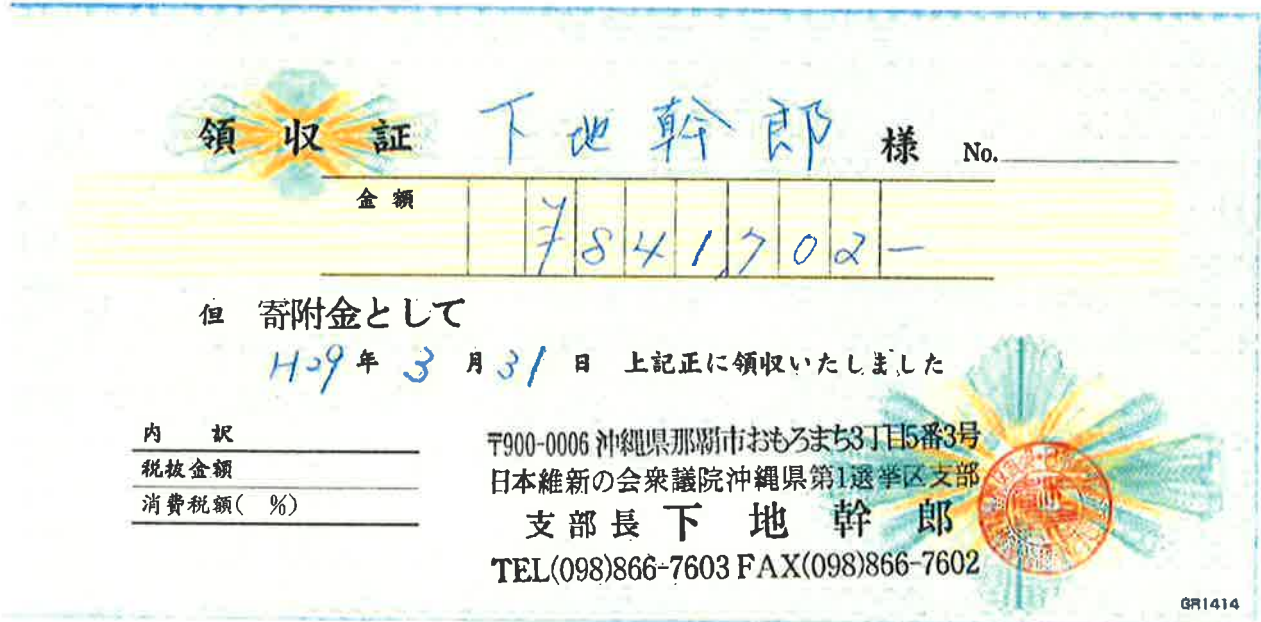 領収証 下地幹郎 様 No.
金額 ¥841,702-
但 寄附金として
H29年 3月31日 上記正に領収いたしました
内訳
税抜金額
消費税額( %)
〒900-0006 沖縄県那覇市おもろまち3丁目5番3号
日本維新の会衆議院沖縄県第1選挙区支部
支部長 下地幹郎
TEL(098)866-7603 FAX(098)866-7602
GR1414